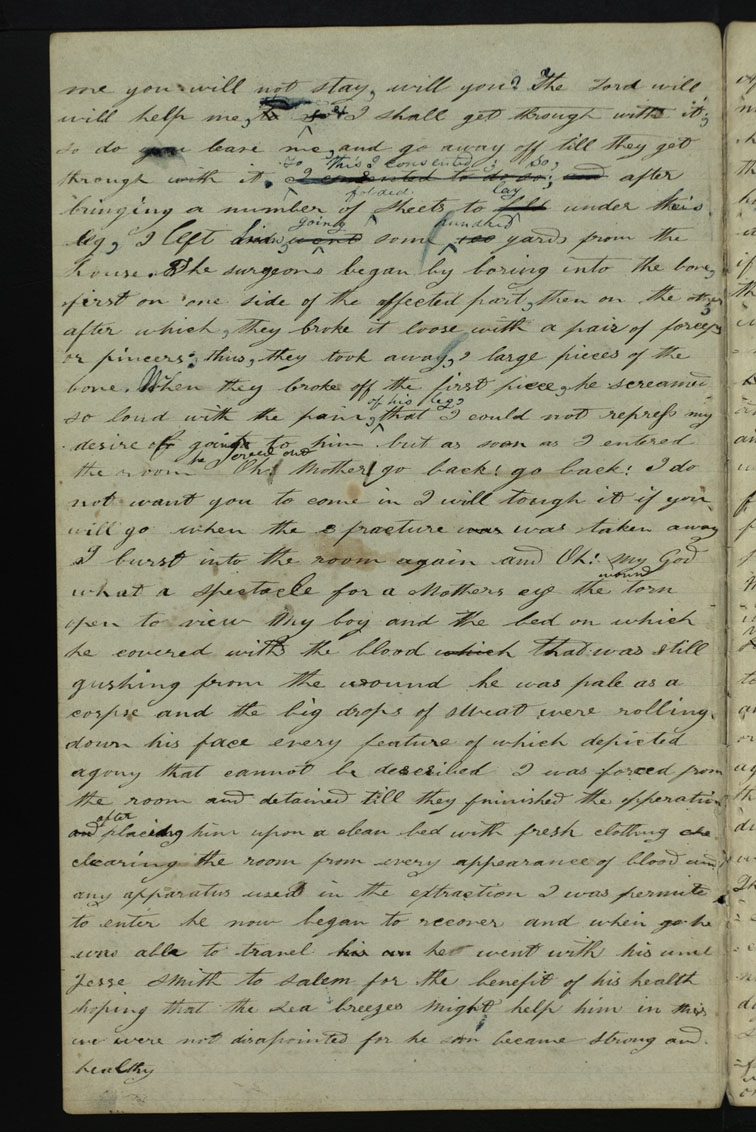 me you will not stay, will you? The Lord will
will help me, to so & I shall get through with it;
so do you leave me, and go away off till they get
To this I consented; so,
through with it. I consented to do so; and after
folded lay
bringing a number of sheets to fold under his
going hundred
leg, I left him, went some 100 yards from the
house. The surgeons began by boring into the bone,
first on one side of the affected part, then on the other,
after which, they broke it loose with a pair of forceps
or pincers: thus, they took away, 2 large pieces of the
bone. When they broke off the first piece, he screamed
of his leg,
so loud with the pain, that I could not repress my
desire of going to him but as soon as I entered
he cried out
the room Oh! Mother! go back! go back! I do
not want you to come in I will tough it if you
will go when the 3 fracture was was taken away
I burst into the room again and Oh! my God
wound
what a spectacle for a Mothers eye the torn
open to view My boy and the bed on which
he covered with the blood which that was still
gushing from the wound he was pale as a
corpse and the big drops of sweat were rolling
down his face every feature of which depicted
agony that cannot be described I was forced from
the room and detained till they finished the operation
after
and placing him upon a clean bed with fresh clothing cle
clearing the room from every appearance of blood and
any apparatus used in the extraction I was permite
to enter he now began to recover and when he
was able to travel he went with his uncl
Jesse Smith to Salem for the benefit of his health
hoping that the Sea breezes might help him in this
we were not disapointed for he soon became strong and
healthy